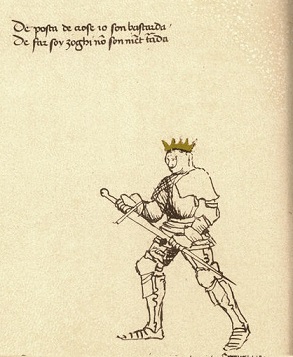 De posta de crose io son bastarda
De far soy zoghi nō son mēt tarda